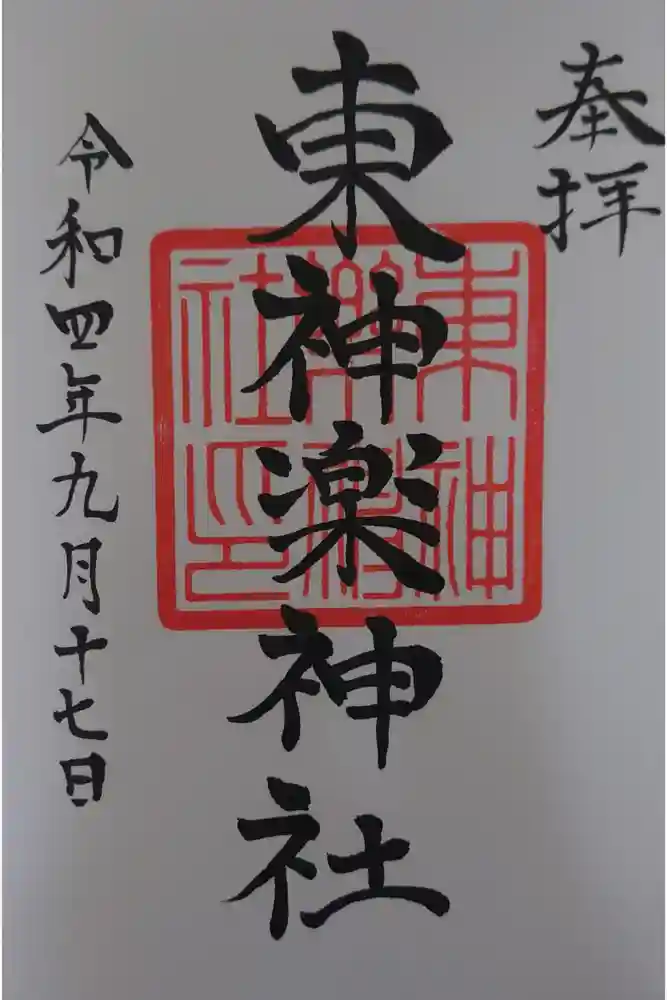 奉拝
東神楽神社
東神
樂神
社印
令和四年九月十七日